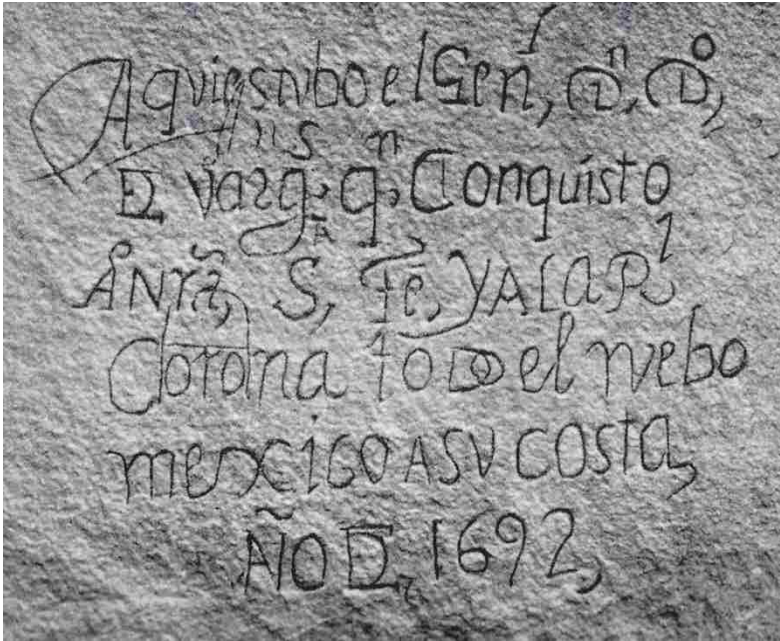 Aqui estubo el Genl, Dn, Do,
De Vargs, qn, Conquisto
A Nra, S, Fe, Y A La Rl
Corona todo el nuebo
mexico A SU COSTA,
AÑO De, 1692,